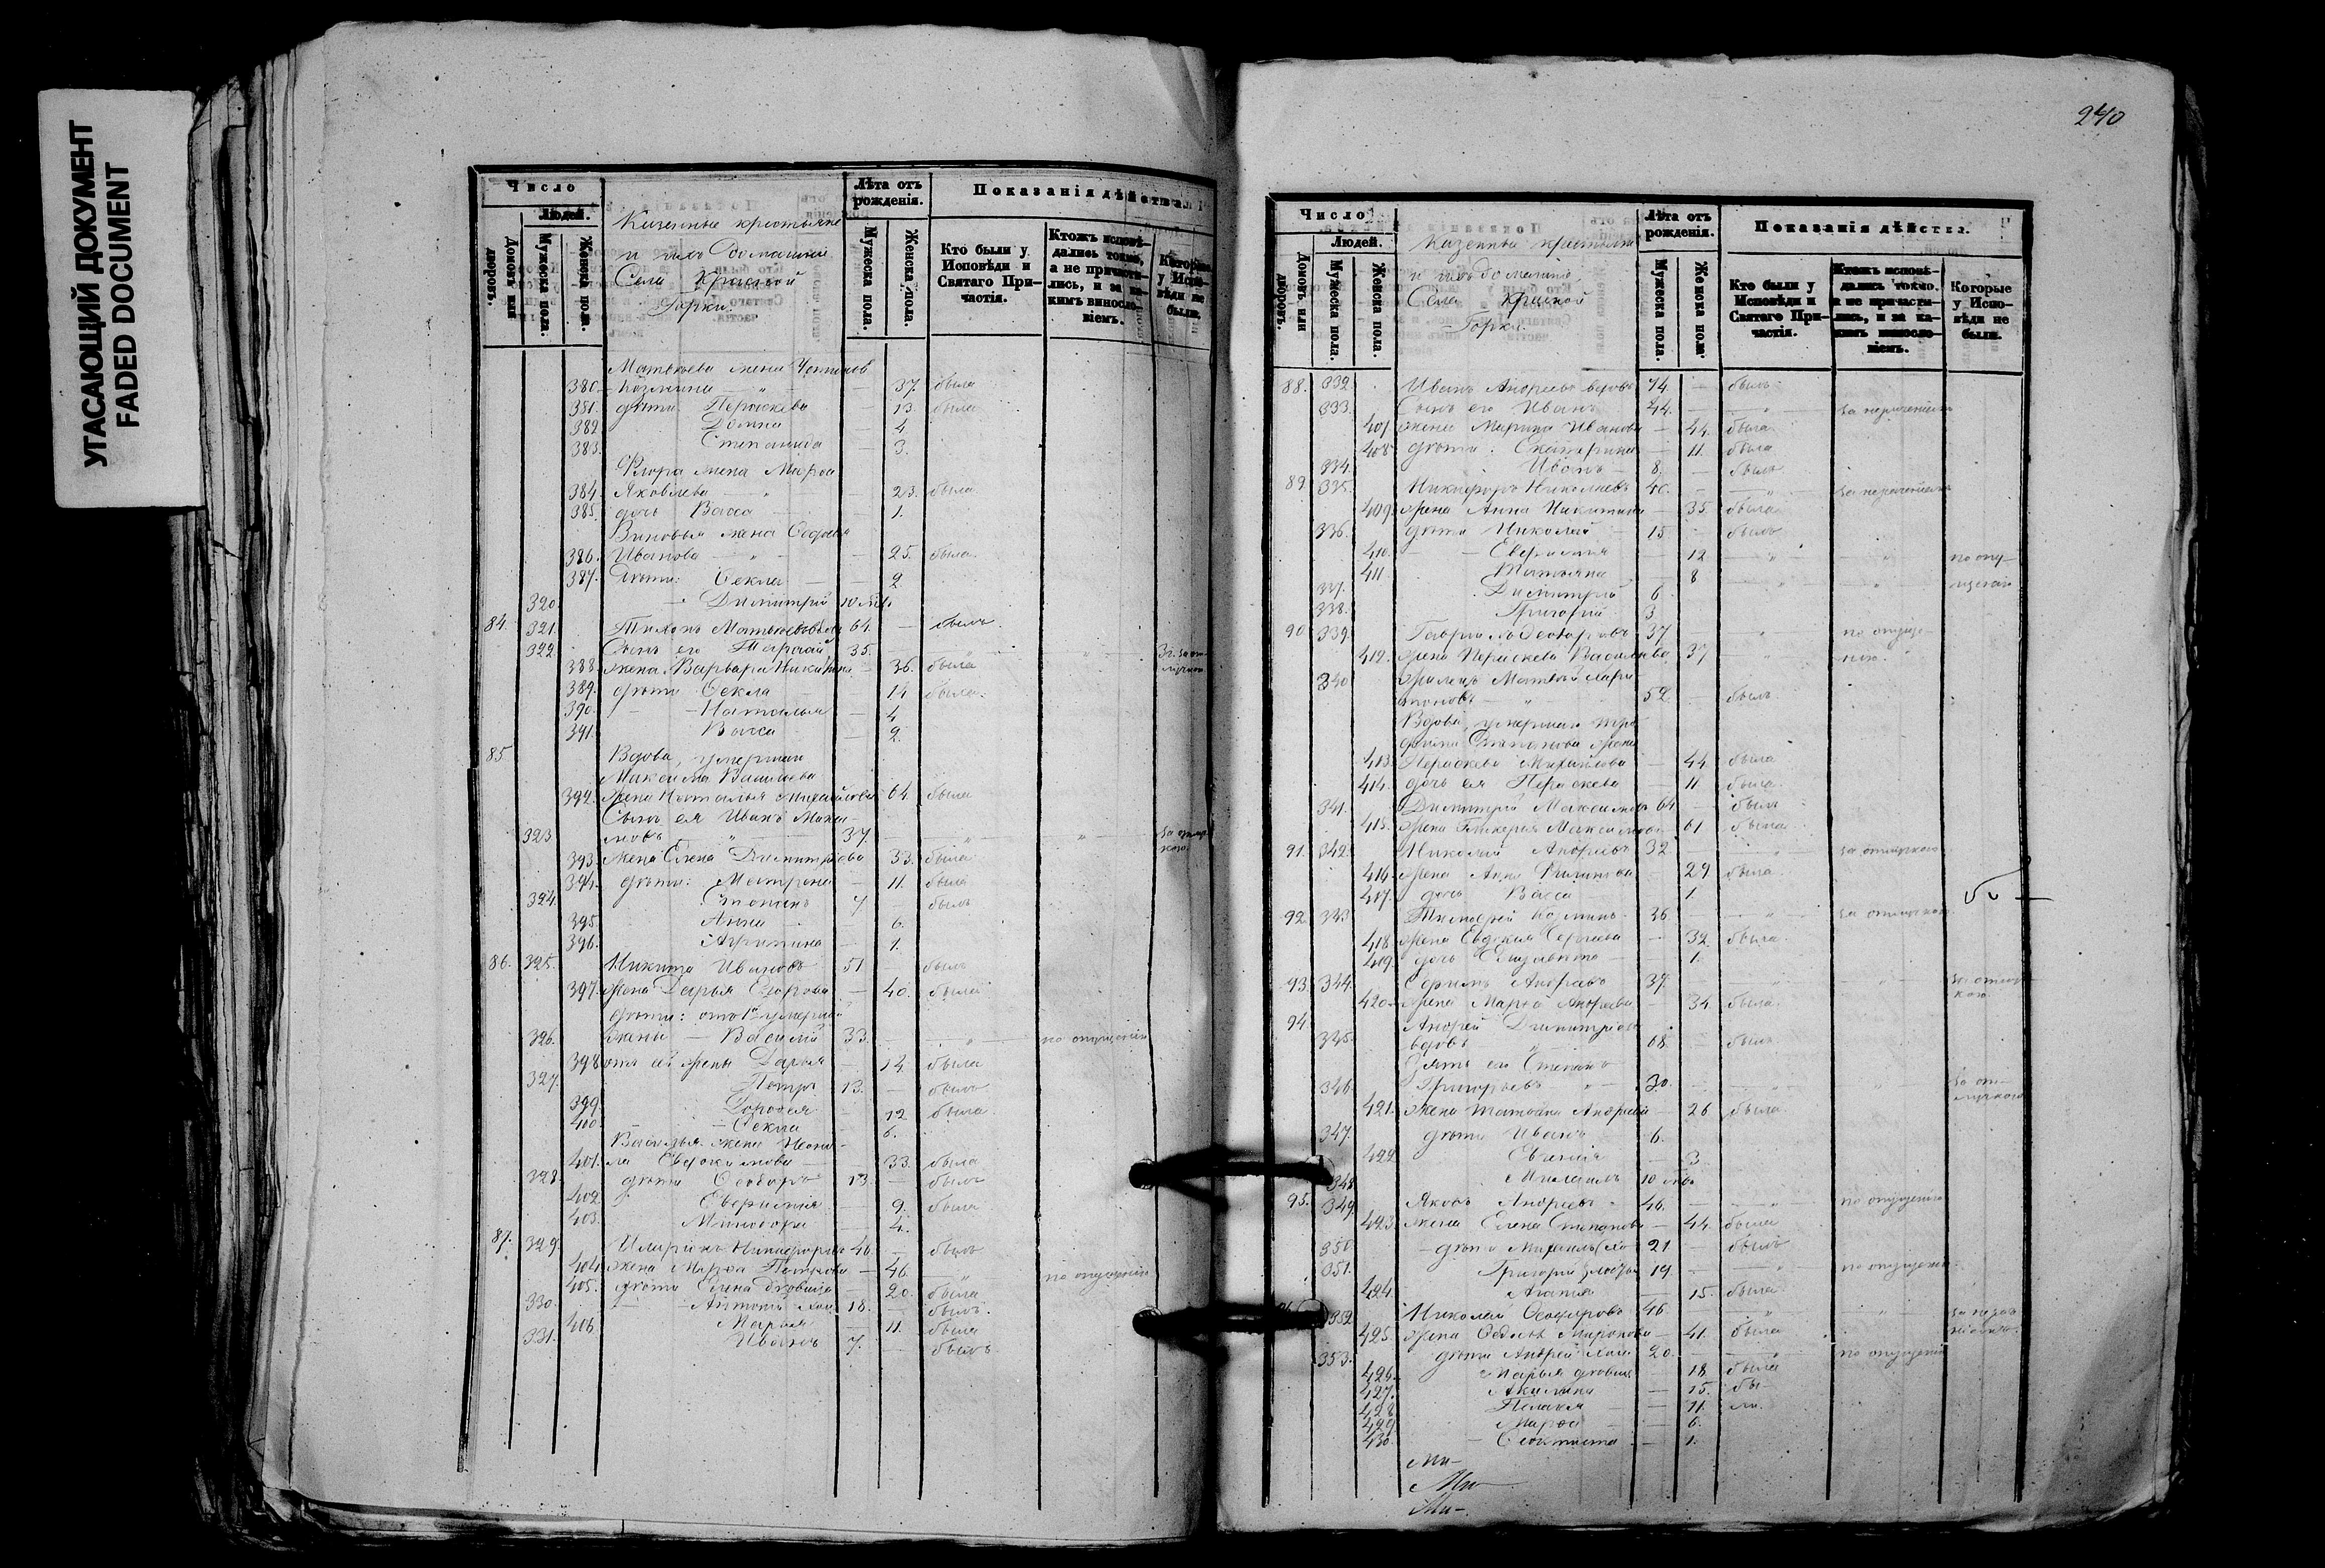 УГАСАЮЩИЙ ДОКУМЕНТ
FADED DOCUMENT
Число
Людей.
Домовъ или дворовъ.
Мужеска пола.
Женска пола.
Казенные крестьяне
и ихъ домашніе
Села Красной
Горки.
Лѣта отъ рожденія.
Мужеска пола.
Женска пола.
Показанія дѣйства
Кто были у Исповѣди и Святаго Причастія.
Ктожъ исповѣдались токмо, а не причастились, и за какимъ винословіемъ.
Которые у Исповѣди не были.
Матвѣева жена
380. — 37. была
381. дѣти: Параскева — 13. была
382 Домна — 4.
383. Степанида — 3.
Флора жена Марѳа
384. Яковлева — 23. была
385. дочь Васса — 1.
жена Софья
386. Иванова — 25. была.
387. Дѣти: Ѳекла — 2
320. Димитрій 10 мѣс.
84. 321. Тихонъ 64. — былъ.
322. Сынъ его 35. —
388. жена Варвара Никитина — 36. была
389. дѣти Ѳекла 14 была.
390. Наталья — 4
391. Васса — 2.
85 Вдова, умершаго
Максима Васильева
392. жена Наталья Михайлова 64. была
Сынъ ея Иванъ Макси-
323 мовъ 37. за отлуч-
кою.
393. жена Елена Димитріева 33. была
394. дѣти: Матрона — 11. была
324. Степанъ 7 — былъ
395 Анна — 6.
396. Агрипина — 1.
86. 325. Никита Ивановъ 51 — былъ
397. жена Дарья Егорова — 40. была
дѣти: отъ 1й умершей
326. жены — Василій 33. — по опущенію
398 отъ сей жены Дарья — 14. была
327. Петръ 13. — былъ
399. Дороѳея — 12 была.
400. Ѳекла — 6.
Василья жена Неони-
401. ла Евдокимова — 33. была
328. дѣти Ѳеодоръ 13. — былъ
402. Евфимія — 9. была
403. Минодора — 4.
87. 329. Иларіонъ Никифоровъ 46. — былъ
404. жена Марѳа — 46. — по опущенію
405. дѣти Елена дѣвица — 20. была
330. Антоній хол. 18. — былъ.
406. Марья — 11. была
331. Иванъ 7. — былъ.
240
Число
Людей.
Домовъ или дворовъ.
Мужеска пола.
Женска пола.
Казенные крестьяне
и ихъ домашніе
Села Красной
Горки.
Лѣта отъ рожденія.
Мужеска пола.
Женска пола.
Показанія дѣйства.
Кто были у Исповѣди и Святаго Причастія.
Ктожъ исповѣдались токмо, а не причастились, и за какимъ винословіемъ.
Которые у Исповѣди не были.
88. 332. Иванъ Андреевъ вдовъ 74. — былъ
333. Сынъ его Иванъ 44. — за нераченіемъ
407. жена Марина Иванова — 44. была
408 дѣти: Екатерина — 11. была
334. Иванъ — 8. — былъ
89 335. Никифоръ Николаевъ 40. — за нераченіемъ
409. жена Анна Никитина — 35. была
336. дѣти Николай 15 — былъ
410. Евфимія — 12 по опу-
411. Татьяна 8 щенію
337. Димитрій 6.
338. Григорій 3.
90. 339. Гавріилъ Ѳеодоровъ 37 по опуще-
412. жена Параскева Васильева 37 нію.
340 Матвѣй Лари-
оновъ 52 — былъ
Вдова, умершаго Тро-
фима Степанова жена
413. Параскева Михайлова — 44. была
414. дочь ея Параскева — 11 была.
341. Димитрій Максимовъ 64 — былъ
415. жена Гликерія Максимова 61 была.
91. 342. Николай Андреевъ 32 — за отлучкою.
416. жена Анна Филипова — 29 была.
417. дочь Васса — 1.
92 343. Тимоѳей Козминъ 36 — за отлучкою.
418 жена Евдокія Сергѣева — 32. была.
419. дочь Елизавета — 1.
93. 344. Ефимъ Андреевъ 37. — за отлуч-
кою.
420 жена Марѳа Андреева — 34 была.
94. Андрей Димитріевъ
345. вдовъ 68. — былъ
Зять его Степанъ
346 Григорьевъ 30. — за от-
лучкою
421. жена Татьяна Андреева — 26 была.
347. дѣти Иванъ 6.
422 Евгенія — 3
348. Михаилъ 10 мѣс.
95. 349. Яковъ Андреевъ 46. — по опущенію
423 жена Елена Степанова — 44. была
350 дѣти Михаилъ 21 — былъ
351. Григорій 19. — по опущенію
424. Агапія — 15. была.
352 Николай Ѳеодоровъ 46. —
425. жена Миронова — 41. была
353. дѣти Андрей хол. 20. — по опущенію
426. Марья дѣвица — 18. была
427. Акилина — 15. бы-
428 Пелагея — 11. ли.
429 Марѳа — 6.
430. Ѳеоктиста — 1.
Ми-
Ми-
Ми-